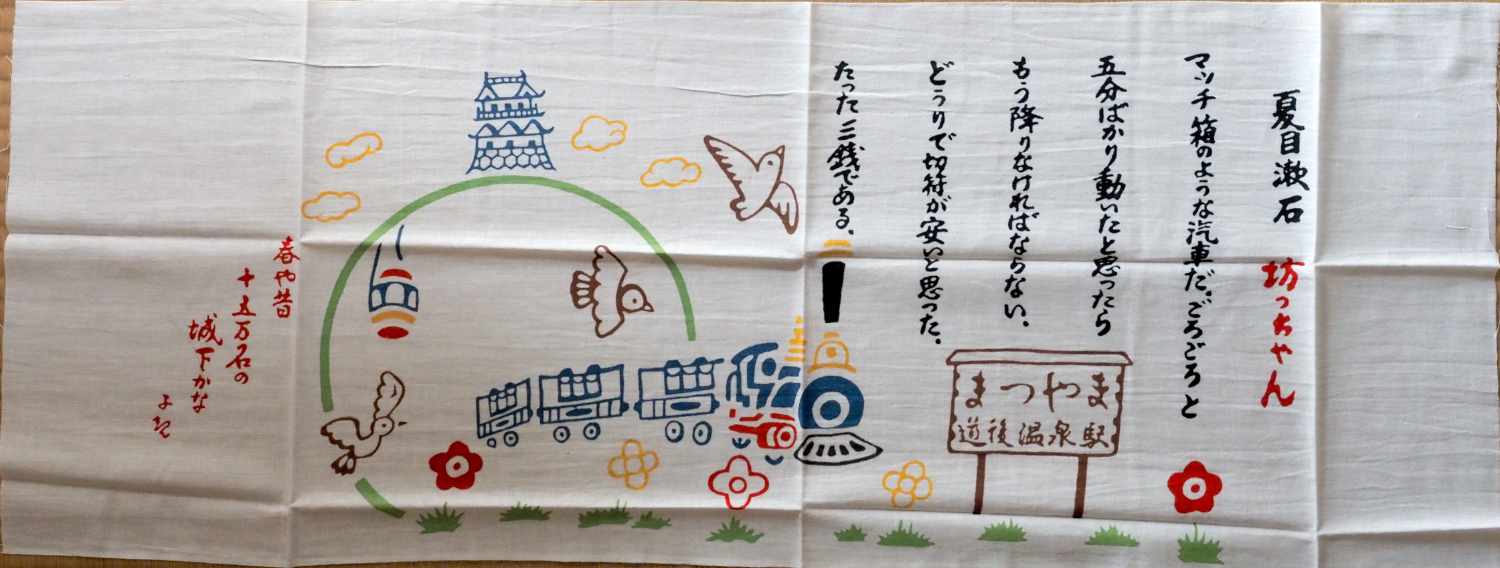 夏目漱石 坊っちゃん
マッチ箱のような汽車だ。ごろごろと
五分ばかり動いたと思ったら
もう降りなければならない。
どうりで切符が安いと思った。
たった三銭である。
まつやま
道後温泉駅
春や昔
十五万石の
城下かな